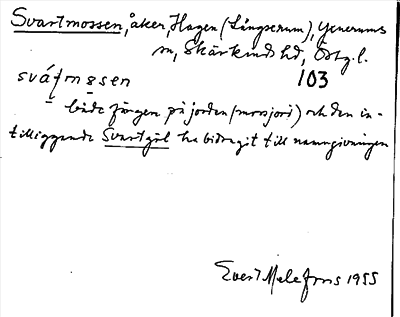 Svartmossen, åker, Hagen (Långserum), Generums
sn, Skärkinds hd, Östg.l.
103
svá̱ʃmo̱sen
både färgen på jorden (mossjord) och den in-
tilliggande Svartgöl ha bidragit till namngivningen
Evert Melefors 1955